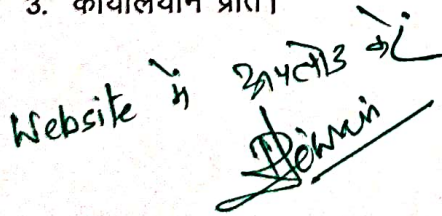 3. कार्यालयीन प्रति।
Website में अपलोड करें
Dewan